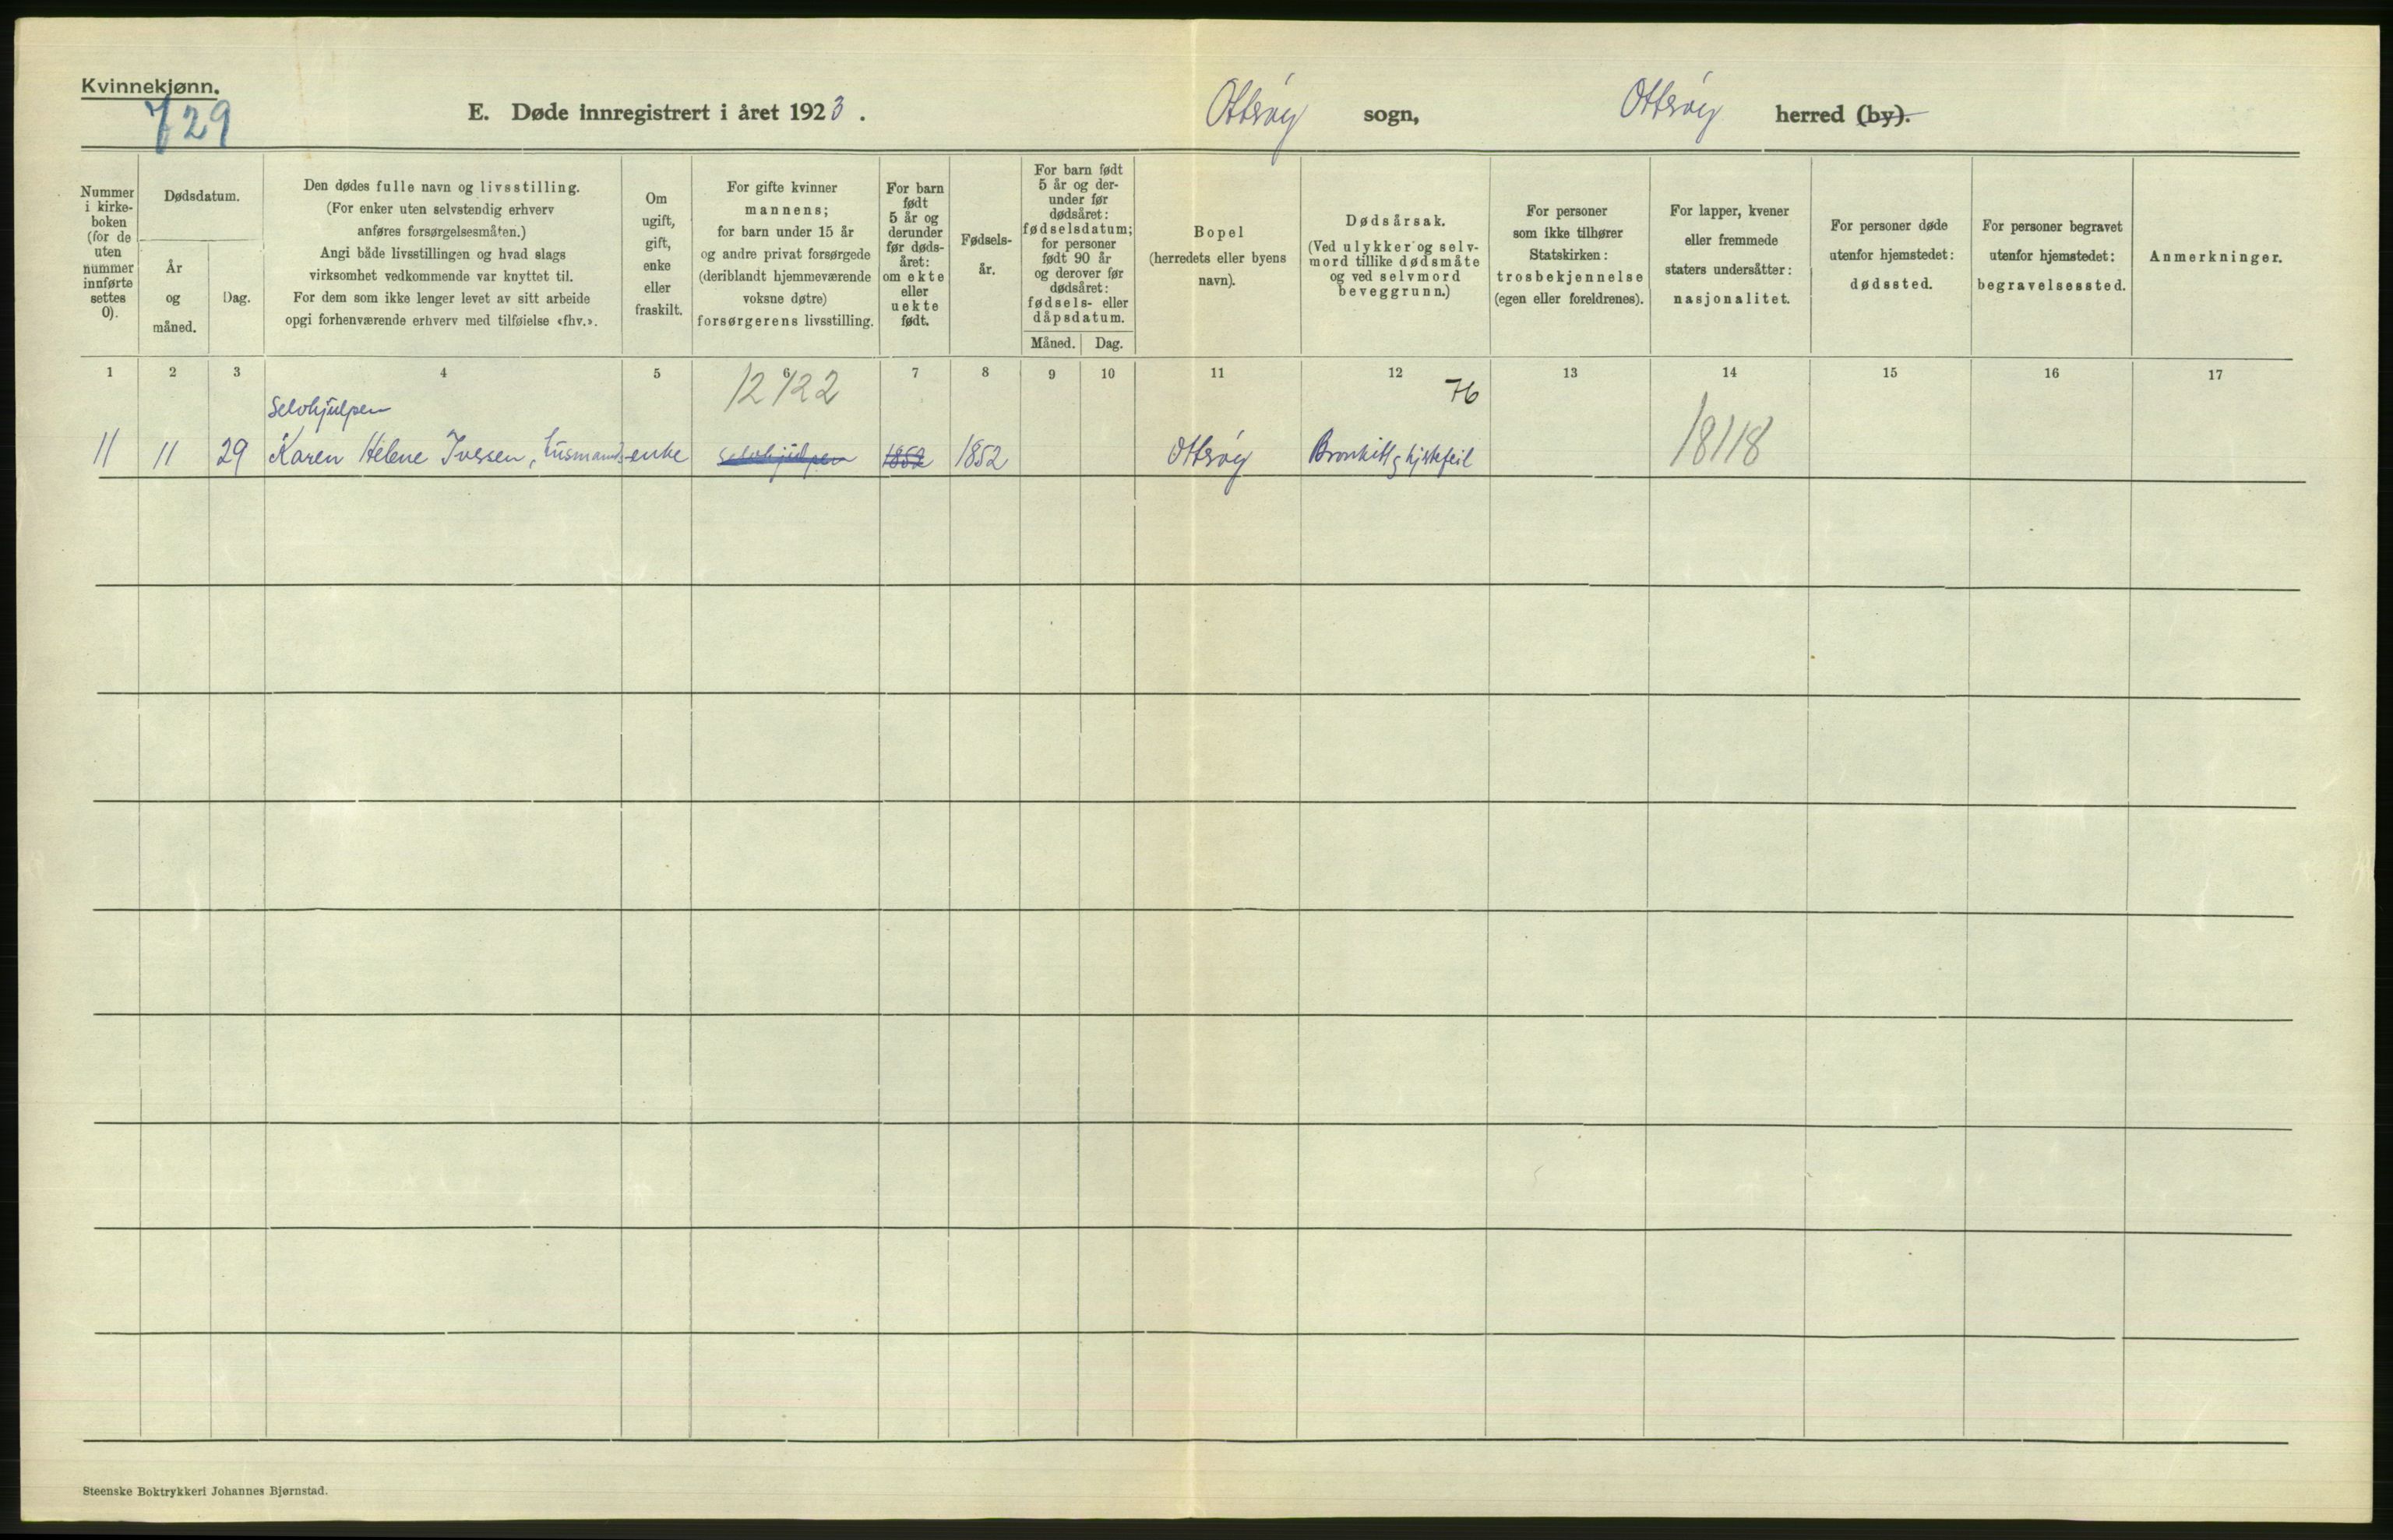 Kvinnekjønn.
729
E. Døde innregistrert i året 1923.
Otterøy sogn,
Otterøy herred (by).
Nummer
i kirke-
boken
(for de
uten
nummer
innførte
settes
0).
Dødsdatum.
År
og
måned.
Dag.
Den dødes fulle navn og livsstilling.
(For enker uten selvstendig erhverv
anføres forsørgelsesmåten.)
Angi både livsstillingen og hvad slags
virksomhet vedkommende var knyttet til.
For dem som ikke lenger levet av sitt arbeide
opgi forhenværende erhverv med tilføielse «fhv.».
Om
ugift,
gift,
enke
eller
fraskilt.
For gifte kvinner
mannens;
for barn under 15 år
og andre privat forsørgede
(deriblandt hjemmeværende
voksne døtre)
forsørgerens livsstilling.
For barn
født
5 år og
derunder
før døds-
året:
om ekte
eller
uekte
født.
Fødsels-
år.
For barn født
5 år og der-
under før
dødsåret:
fødselsdatum;
for personer
født 90 år
og derover før
dødsåret:
fødsels- eller
dåpsdatum.
Måned.
Dag.
Bopel
(herredets eller byens
navn).
Dødsårsak.
(Ved ulykker og selv-
mord tillike dødsmåte
og ved selvmord
beveggrunn.)
For personer
som ikke tilhører
Statskirken:
trosbekjennelse
(egen eller foreldrenes).
For lapper, kvener
eller fremmede
staters undersåtter:
nasjonalitet.
For personer døde
utenfor hjemstedet:
dødssted.
For personer begravet
utenfor hjemstedet:
begravelsessted.
Anmerkninger.
1 2 3 4 5 6 7 8 9 10 11 12 13 14 15 16 17
Selvhjulpen
12422
76
11 11 29 Karen Helene Iversen, husmands-enke selvhjulpen 1852 1852 Otterøy Bronkitt og hjertefeil 18118
Steenske Boktrykkeri Johannes Bjørnstad.